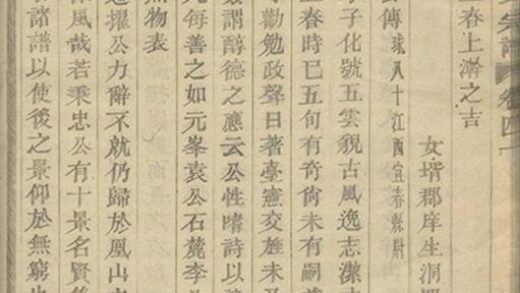 宗譜卷四十
春上澣之吉
女壻郡庠生洞
傳 球八十江西宜春縣尉
子子化號五雲貌古風逸志潔
春時已五旬有奇尙未有嗣
勸勉政聲日著臺憲交旌未
謂醇德之應云公性嗜詩以
元每善之如元峯袁公石麓李
無物表
擢公力辭不就仍歸於凰山
風哉若秉忠公有十景名賢
諸譜以使後之景仰於無窮